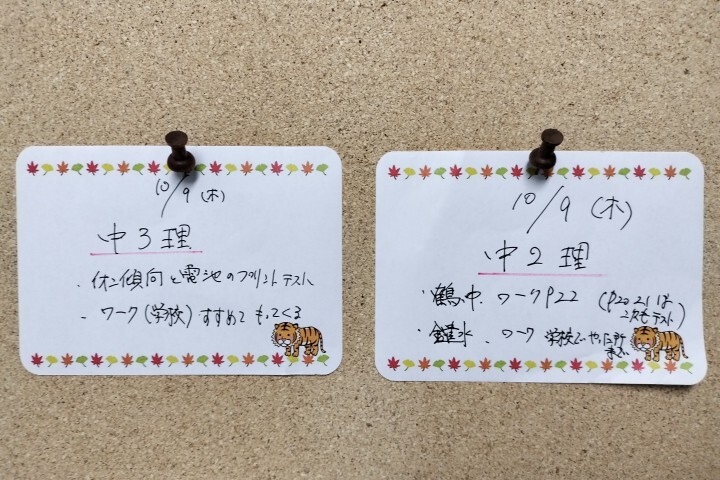 10/9 (木)
中3理
・イオン傾向と電池のプリントテスト
・ワーク(学校)すすめてもってくる
10/9 (木)
中2理
・鶴中.ワークP22 (P20.21は
次もテスト)
・鑓水.ワーク 学校でやった所
まで